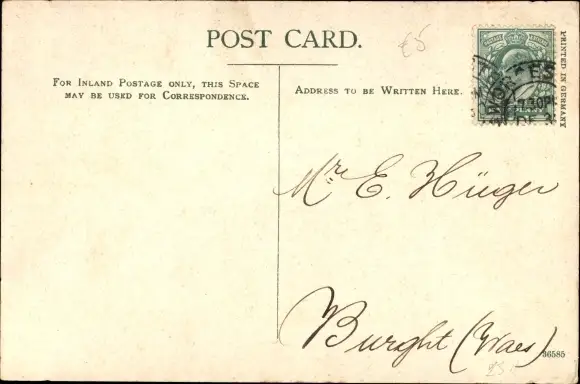 POST CARD.
£5
FOR INLAND POSTAGE ONLY, THIS SPACE
MAY BE USED FOR CORRESPONDENCE.
ADDRESS TO BE WRITTEN HERE.
PRINTED IN GERMANY
Mr E. Hüger
Burght (Waes)
36585